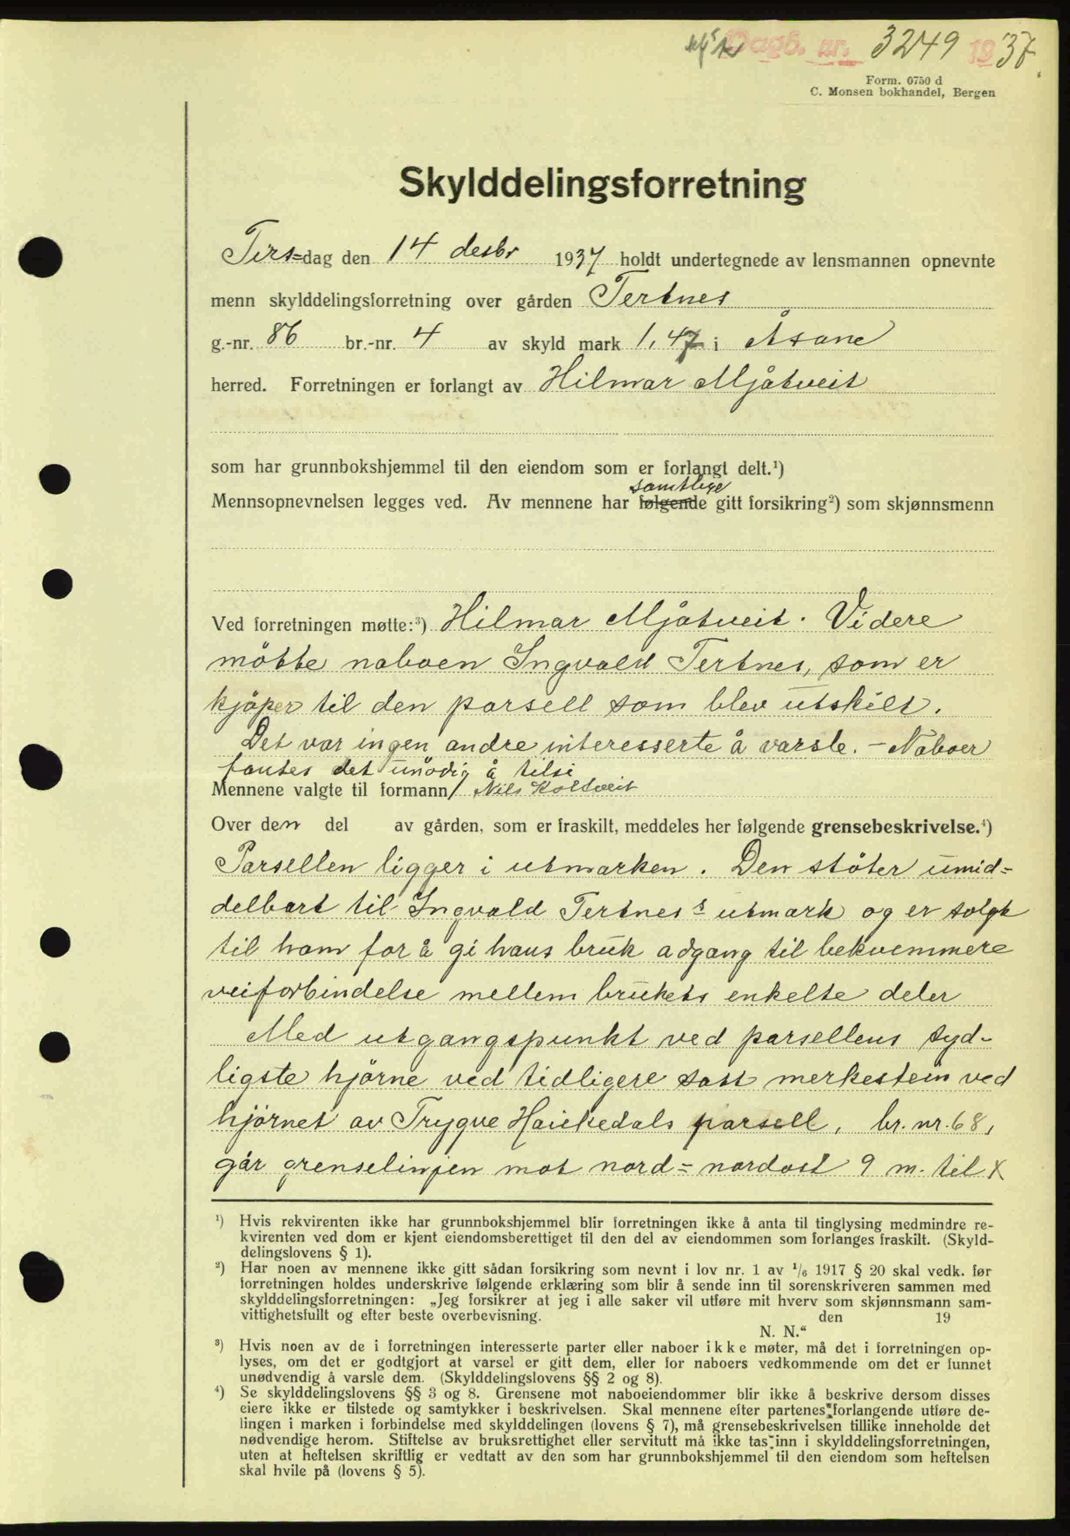 Dagb. nr. 3249 1937.
Form. 0750 d
C. Monsen bokhandel, Bergen
Skylddelingsforretning
Tirs=dag den 14 desbr 1937 holdt undertegnede av lensmannen opnevnte
menn skylddelingsforretning over gården Tertnes
g.-nr. 86 br.-nr. 4 av skyld mark 1,47 i Åsane
herred. Forretningen er forlangt av Hilmar Mjåtveit
som har grunnbokshjemmel til den eiendom som er forlangt delt.¹)
samtlige
Mennsopnevnelsen legges ved. Av mennene har følgende gitt forsikring²) som skjønnsmenn
Ved forretningen møtte:³) Hilmar Mjåtveit. Videre
møtte naboen Ingvald Tertnes, som er
kjøper til den parsell som blev utskilt.
Det var ingen andre interesserte å varsle. – Naboer
fantes det unødig å tilsi
Mennene valgte til formann Nils Koltveit
Over den del av gården, som er fraskilt, meddeles her følgende grensebeskrivelse.⁴)
Parsellen ligger i utmarken. Den støter umid=
delbart til Ingvald Tertnes's utmark og er solgt
til ham for å gi hans bruk adgang til bekvemmere
veiforbindelse mellem brukets enkelte deler
Med utgangspunkt ved parsellens syd-
ligste hjørne ved tidligere satt merkestein ved
hjørnet av Trygve Haukedals parsell, br. nr. 68,
går grenselinjen mot nord=nordost 9 m. til X
¹) Hvis rekvirenten ikke har grunnbokshjemmel blir forretningen ikke å anta til tinglysing medmindre re-
kvirenten ved dom er kjent eiendomsberettiget til den del av eiendommen som forlanges fraskilt. (Skyld-
delingslovens § 1).
²) Har noen av mennene ikke gitt sådan forsikring som nevnt i lov nr. 1 av ¹/₆ 1917 § 20 skal vedk. før
forretningen holdes underskrive følgende erklæring som blir å sende inn til sorenskriveren sammen med
skylddelingsforretningen: „Jeg forsikrer at jeg i alle saker vil utføre mit hverv som skjønnsmann sam-
vittighetsfullt og efter beste overbevisning. den 19
N. N.“
³) Hvis noen av de i forretningen interesserte parter eller naboer ikke møter, må det i forretningen op-
lyses, om det er godtgjort at varsel er gitt dem, eller for naboers vedkommende om det er funnet
unødvendig å varsle dem. (Skylddelingslovens §§ 2 og 8).
⁴) Se skylddelingslovens §§ 3 og 8. Grensene mot naboeiendommer blir ikke å beskrive dersom disses
eiere ikke er tilstede og samtykker i beskrivelsen. Skal mennene efter partenes forlangende utføre de-
lingen i marken i forbindelse med skylddelingen (lovens § 7), må grensebeskrivelsen tillike inneholde det
nødvendige herom. Stiftelse av bruksrettighet eller servitutt må ikke tas inn i skylddelingsforretningen,
uten at heftelsen skriftlig er vedtatt av den som har grunnbokshjemmel til den eiendom som heftelsen
skal hvile på (lovens § 5).